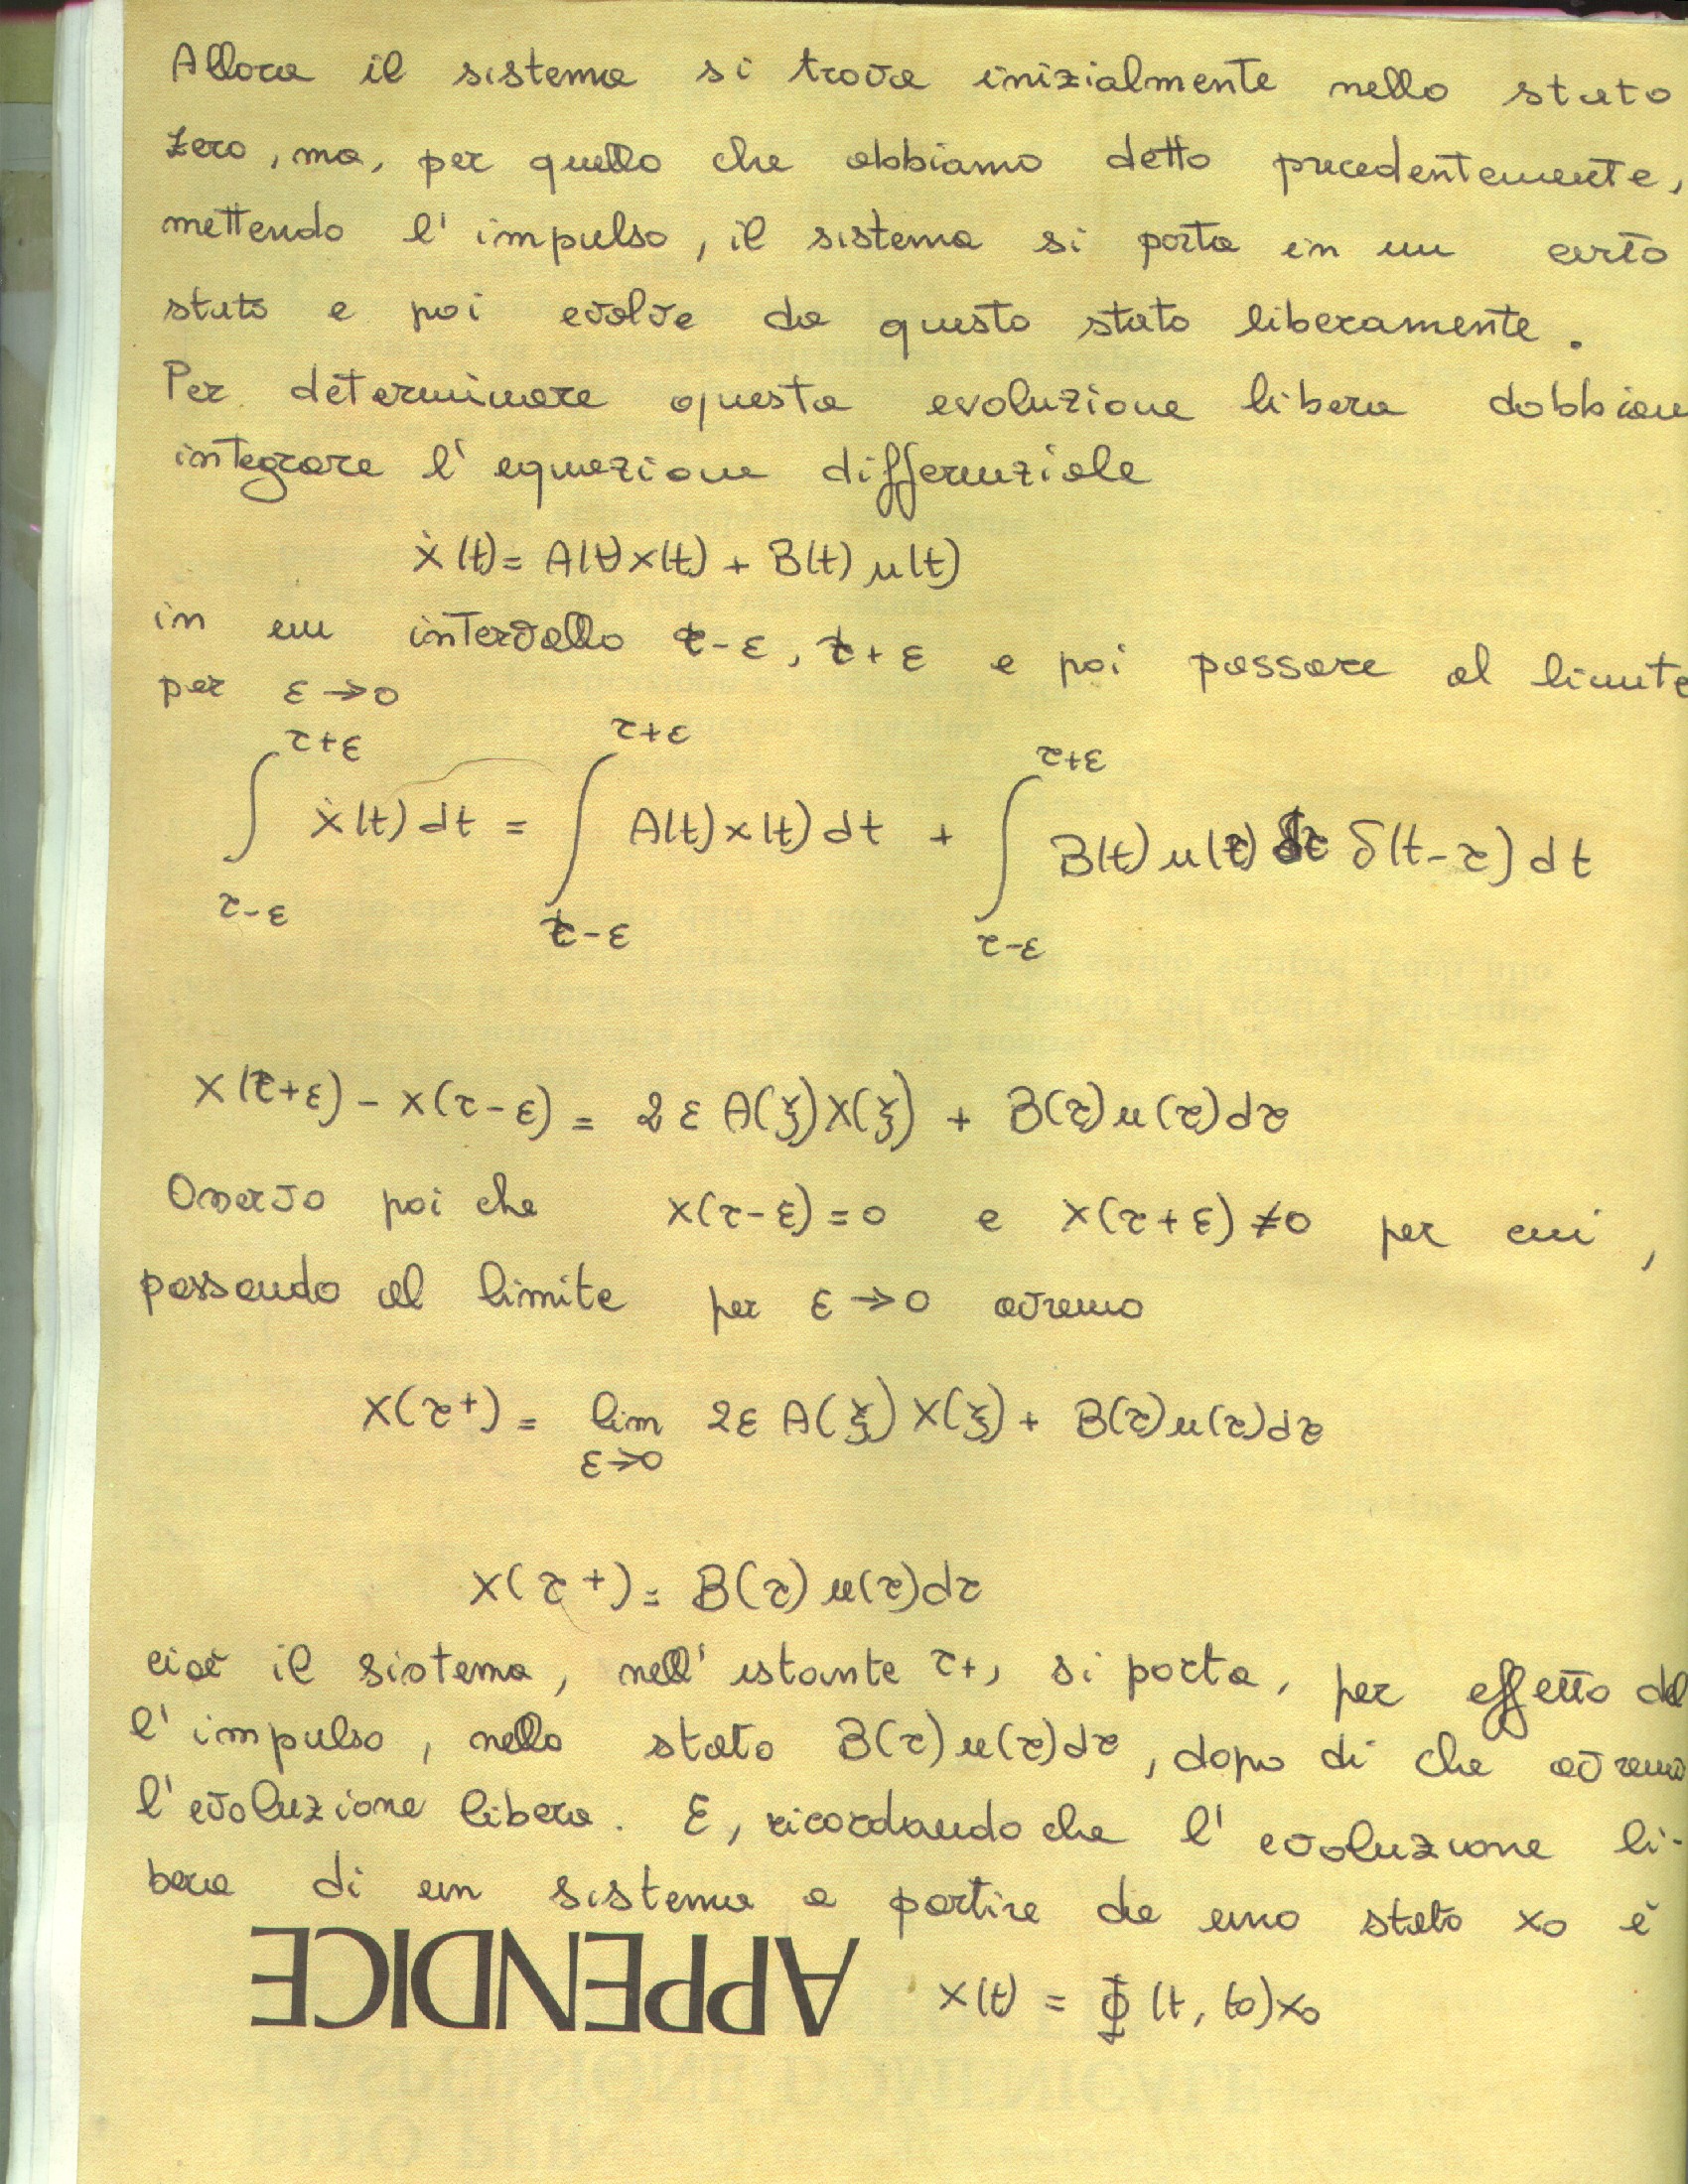 Allora il sistema si trova inizialmente nello stato
zero, ma, per quello che abbiamo detto precedentemente,
mettendo l'impulso, il sistema si porta in un certo
stato e poi evolve da questo stato liberamente.
Per determinare questa evoluzione libera dobbiam
integrare l'equazione differenziale
ẋ(t) = A(t)x(t) + B(t)u(t)
in un intervallo τ-ε, τ+ε e poi passare al limite
per ε→0
∫_{τ-ε}^{τ+ε} ẋ(t)dt = ∫_{τ-ε}^{τ+ε} A(t)x(t)dt + ∫_{τ-ε}^{τ+ε} B(t)u(τ)dτ δ(t-τ)dt
x(τ+ε) - x(τ-ε) = 2εA(ξ)x(ξ) + B(τ)u(τ)dτ
Osservo poi che x(τ-ε)=0 e x(τ+ε)≠0 per cui,
passando al limite per ε→0 avremo
x(τ+) = lim_{ε→0} 2εA(ξ)x(ξ) + B(τ)u(τ)dτ
x(τ+) = B(τ)u(τ)dτ
cioè il sistema, nell'istante τ+, si porta, per effetto del
l'impulso, nello stato B(τ)u(τ)dτ, dopo di che avremo
l'evoluzione libera. E, ricordando che l'evoluzione li-
bera di un sistema a partire da uno stato x0 è
APPENDICE
x(t) = Φ(t, t0)x0